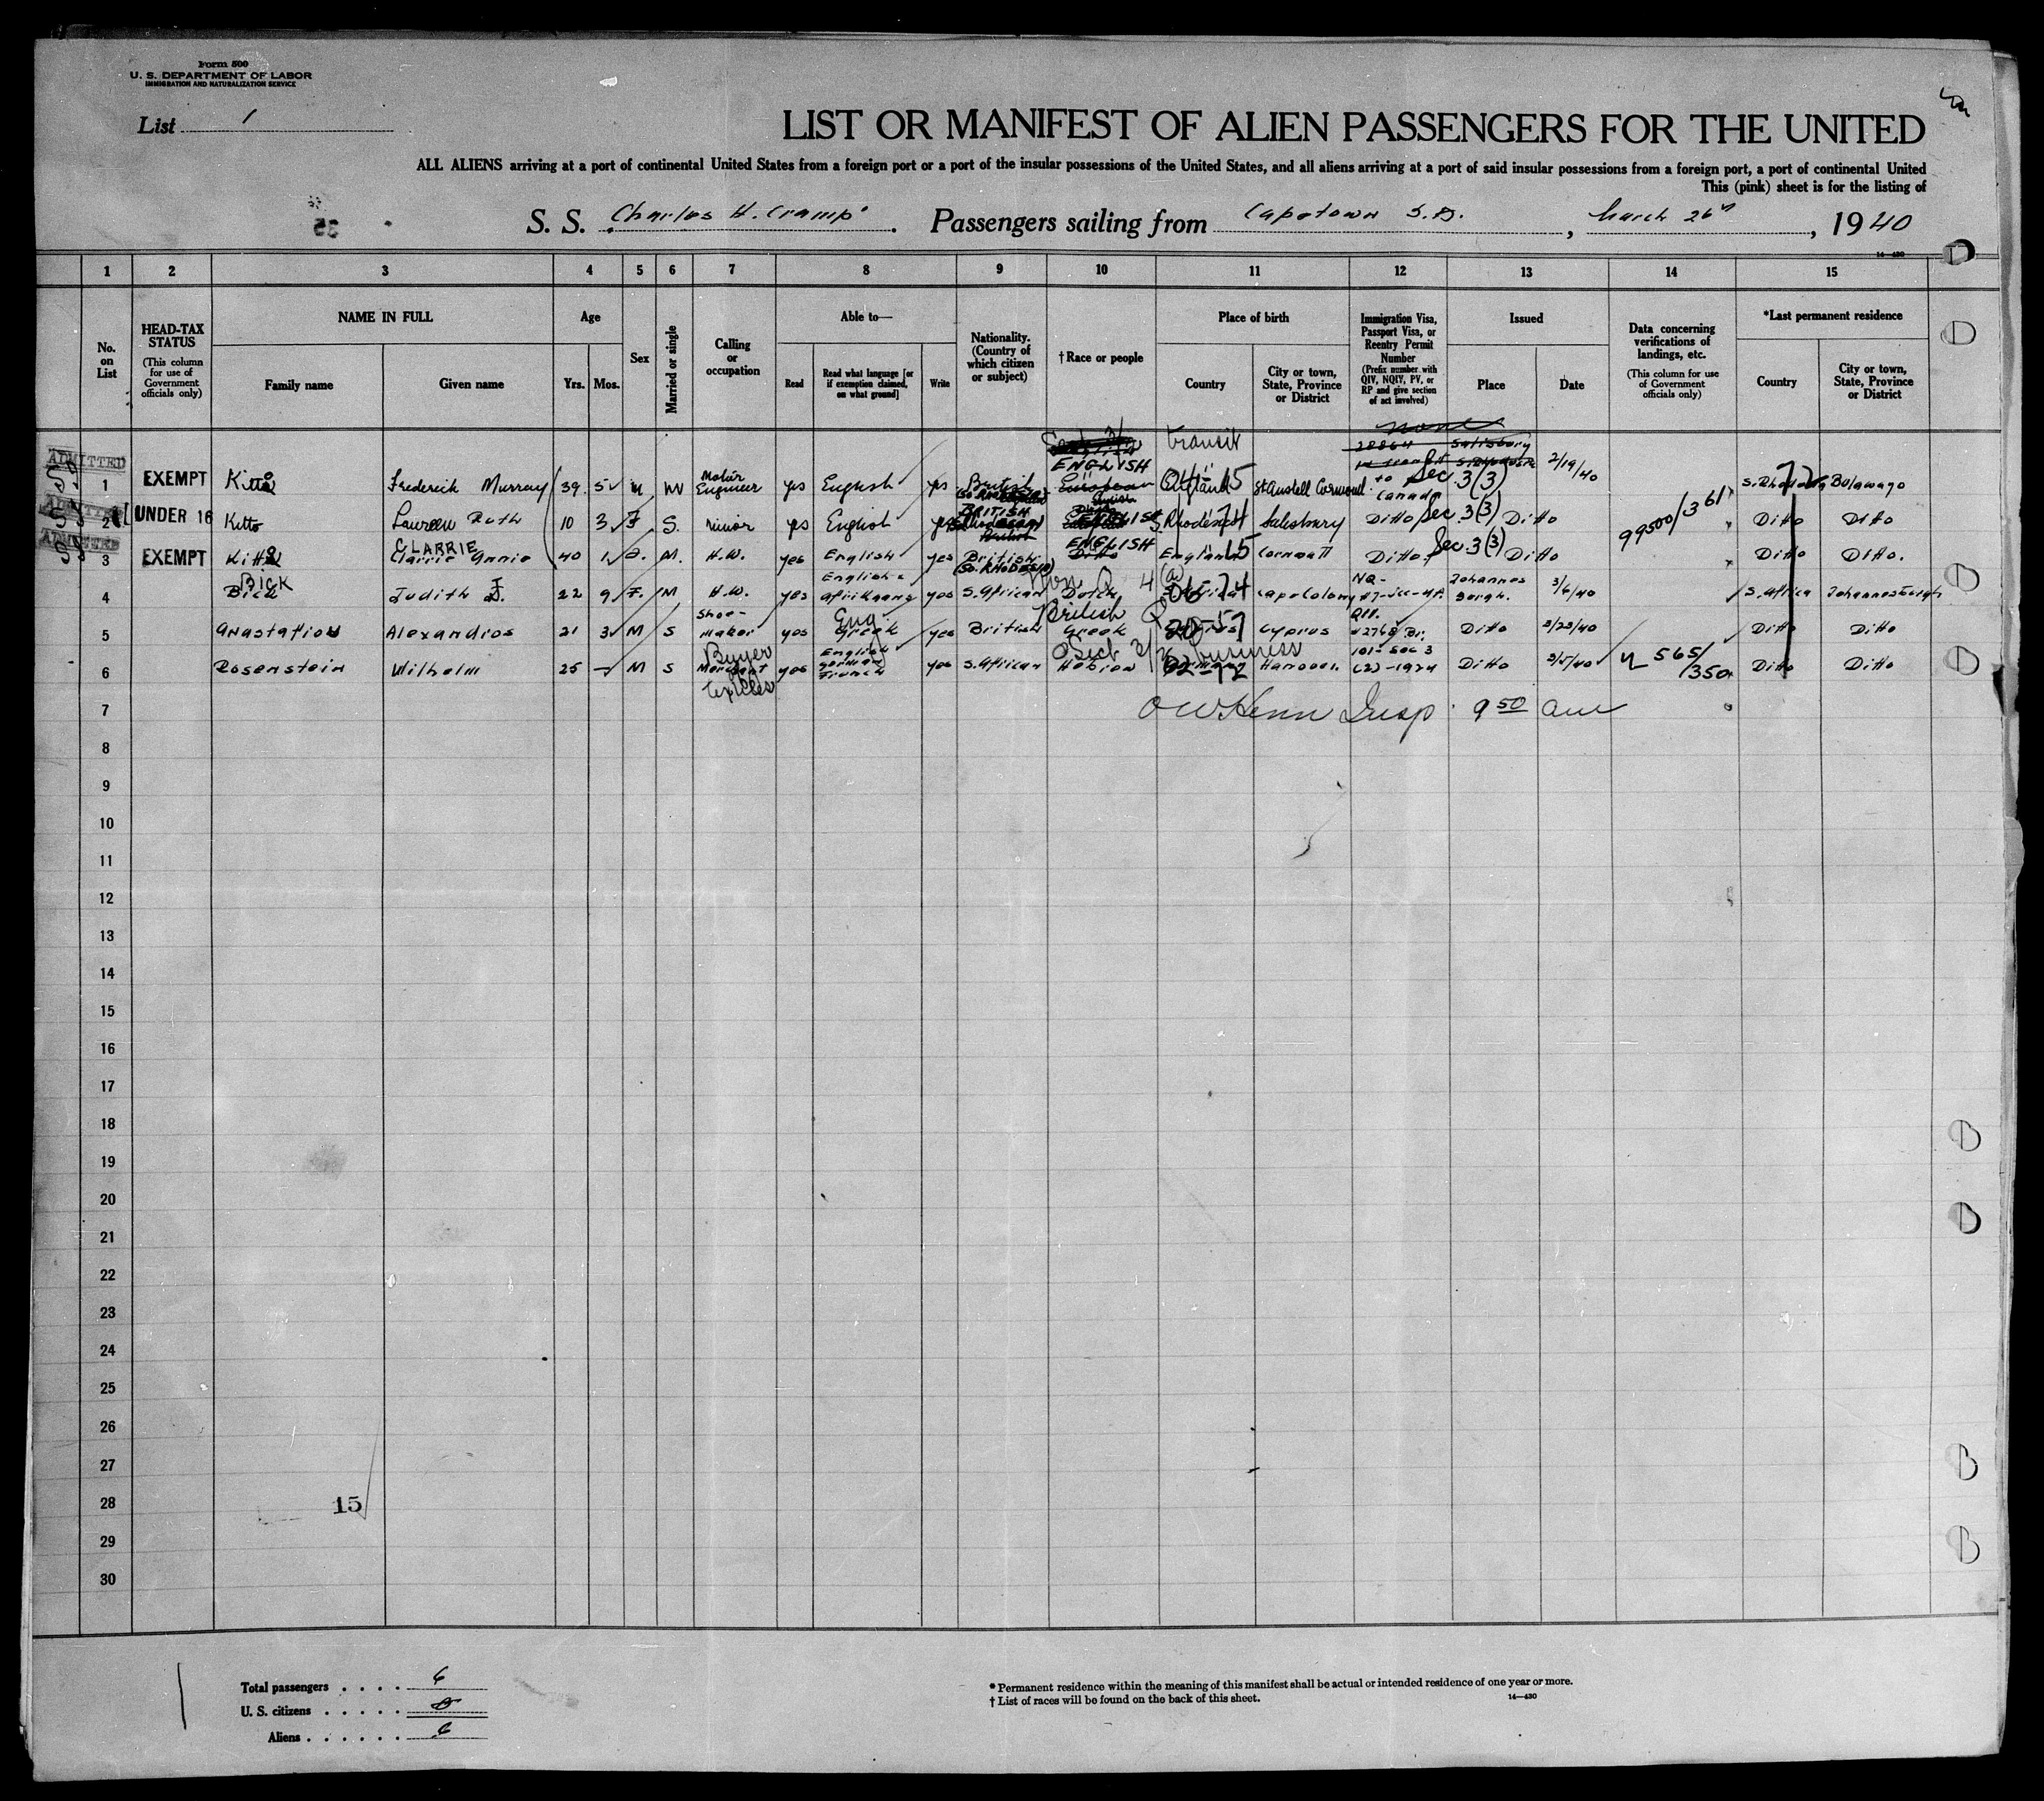 Form 500
U. S. DEPARTMENT OF LABOR
IMMIGRATION AND NATURALIZATION SERVICE
List 1
LIST OR MANIFEST OF ALIEN PASSENGERS FOR THE UNITED
ALL ALIENS arriving at a port of continental United States from a foreign port or a port of the insular possessions of the United States, and all aliens arriving at a port of said insular possessions from a foreign port, a port of continental United
This (pink) sheet is for the listing of
S. S. Charles H. Cramp. Passengers sailing from Capetown S.A., March 26th, 1940
14—430
1 2 3 4 5 6 7 8 9 10 11 12 13 14 15
No. on List
HEAD-TAX STATUS
(This column for use of Government officials only)
NAME IN FULL
Family name Given name
Age
Yrs. Mos.
Sex
Married or single
Calling or occupation
Able to—
Read
Read what language [or if exemption claimed, on what ground]
Write
Nationality. (Country of which citizen or subject)
†Race or people
Place of birth
Country
City or town, State, Province or District
Immigration Visa, Passport Visa, or Reentry Permit Number
(Prefix number with QIV, NQIV, PV, or RP and give section of act involved)
Issued
Place Date
Data concerning verifications of landings, etc.
(This column for use of Government officials only)
*Last permanent residence
Country
City or town, State, Province or District
transit none
28864 Salisbury
ADMITTED
1 EXEMPT Kitto Frederick Murray 39 5 M M Motor Engineer yes English yes British ENGLISH England 15 St Austell Cornwall to Canada Sec 3(3) 2/19/40 S. Rhodesia Bulawayo
ADMITTED
2 UNDER 16 Kitto Laureen Ruth 10 3 F S. minor yes English yes BRITISH ENGLISH S Rhodesia 74 Salesbury Ditto Sec 3(3) Ditto 99500/361 Ditto Ditto
ADMITTED
3 EXEMPT Kitto CLARRIE Annie 40 1 M. H.W. yes English yes British (SO. RHODESIA) ENGLISH England 15 Cornwall Ditto Sec 3(3) Ditto Ditto Ditto.
4 BICK Judith 22 9 F. M H.W. yes English & Afrikaans yes S. African Dutch 06-74 Cape Colony NQ- Johannesburgh. 3/6/40 S. Africa Johannesburgh
5 Anastasiou Alexandros 21 3 M S Shoe-maker yes Eng. Greek yes British Greek British 20-57 Cyprus QIV. #2768 Br. Ditto 2/23/40 Ditto Ditto
6 Rosenstein Wilhelm 25 M S Buyer Merchant textiles yes English German French yes S. African Hebrew Sect 3/2 business 02-72 Hanover 101- Sec 3 (2)-1924 Ditto 3/5/40 565/350 Ditto Ditto
7 Insp. 9 50 am
8
9
10
11
12
13
14
15
16
17
18
19
20
21
22
23
24
25
26
27
28 15
29
30
Total passengers . . . . 6
U. S. citizens . . . . . 0
Aliens . . . . . . 6
* Permanent residence within the meaning of this manifest shall be actual or intended residence of one year or more.
† List of races will be found on the back of this sheet. 14—430